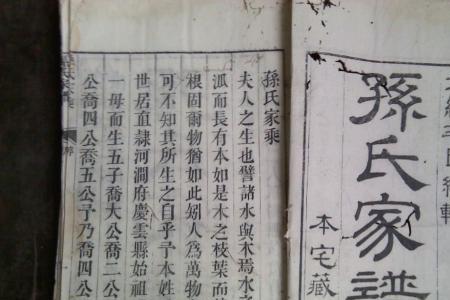 孫氏家譜
本宅藏
孫氏家乘
夫人之生也譬諸水與木焉水
泒而長有本如是木之枝葉而
根固爾物猶如此矧人爲萬物
可不知其所生之自乎予本姓
世居直隷河澗府慶雲縣始祖
一母而生五子喬大公喬二公
公喬四公喬五公予乃喬四公